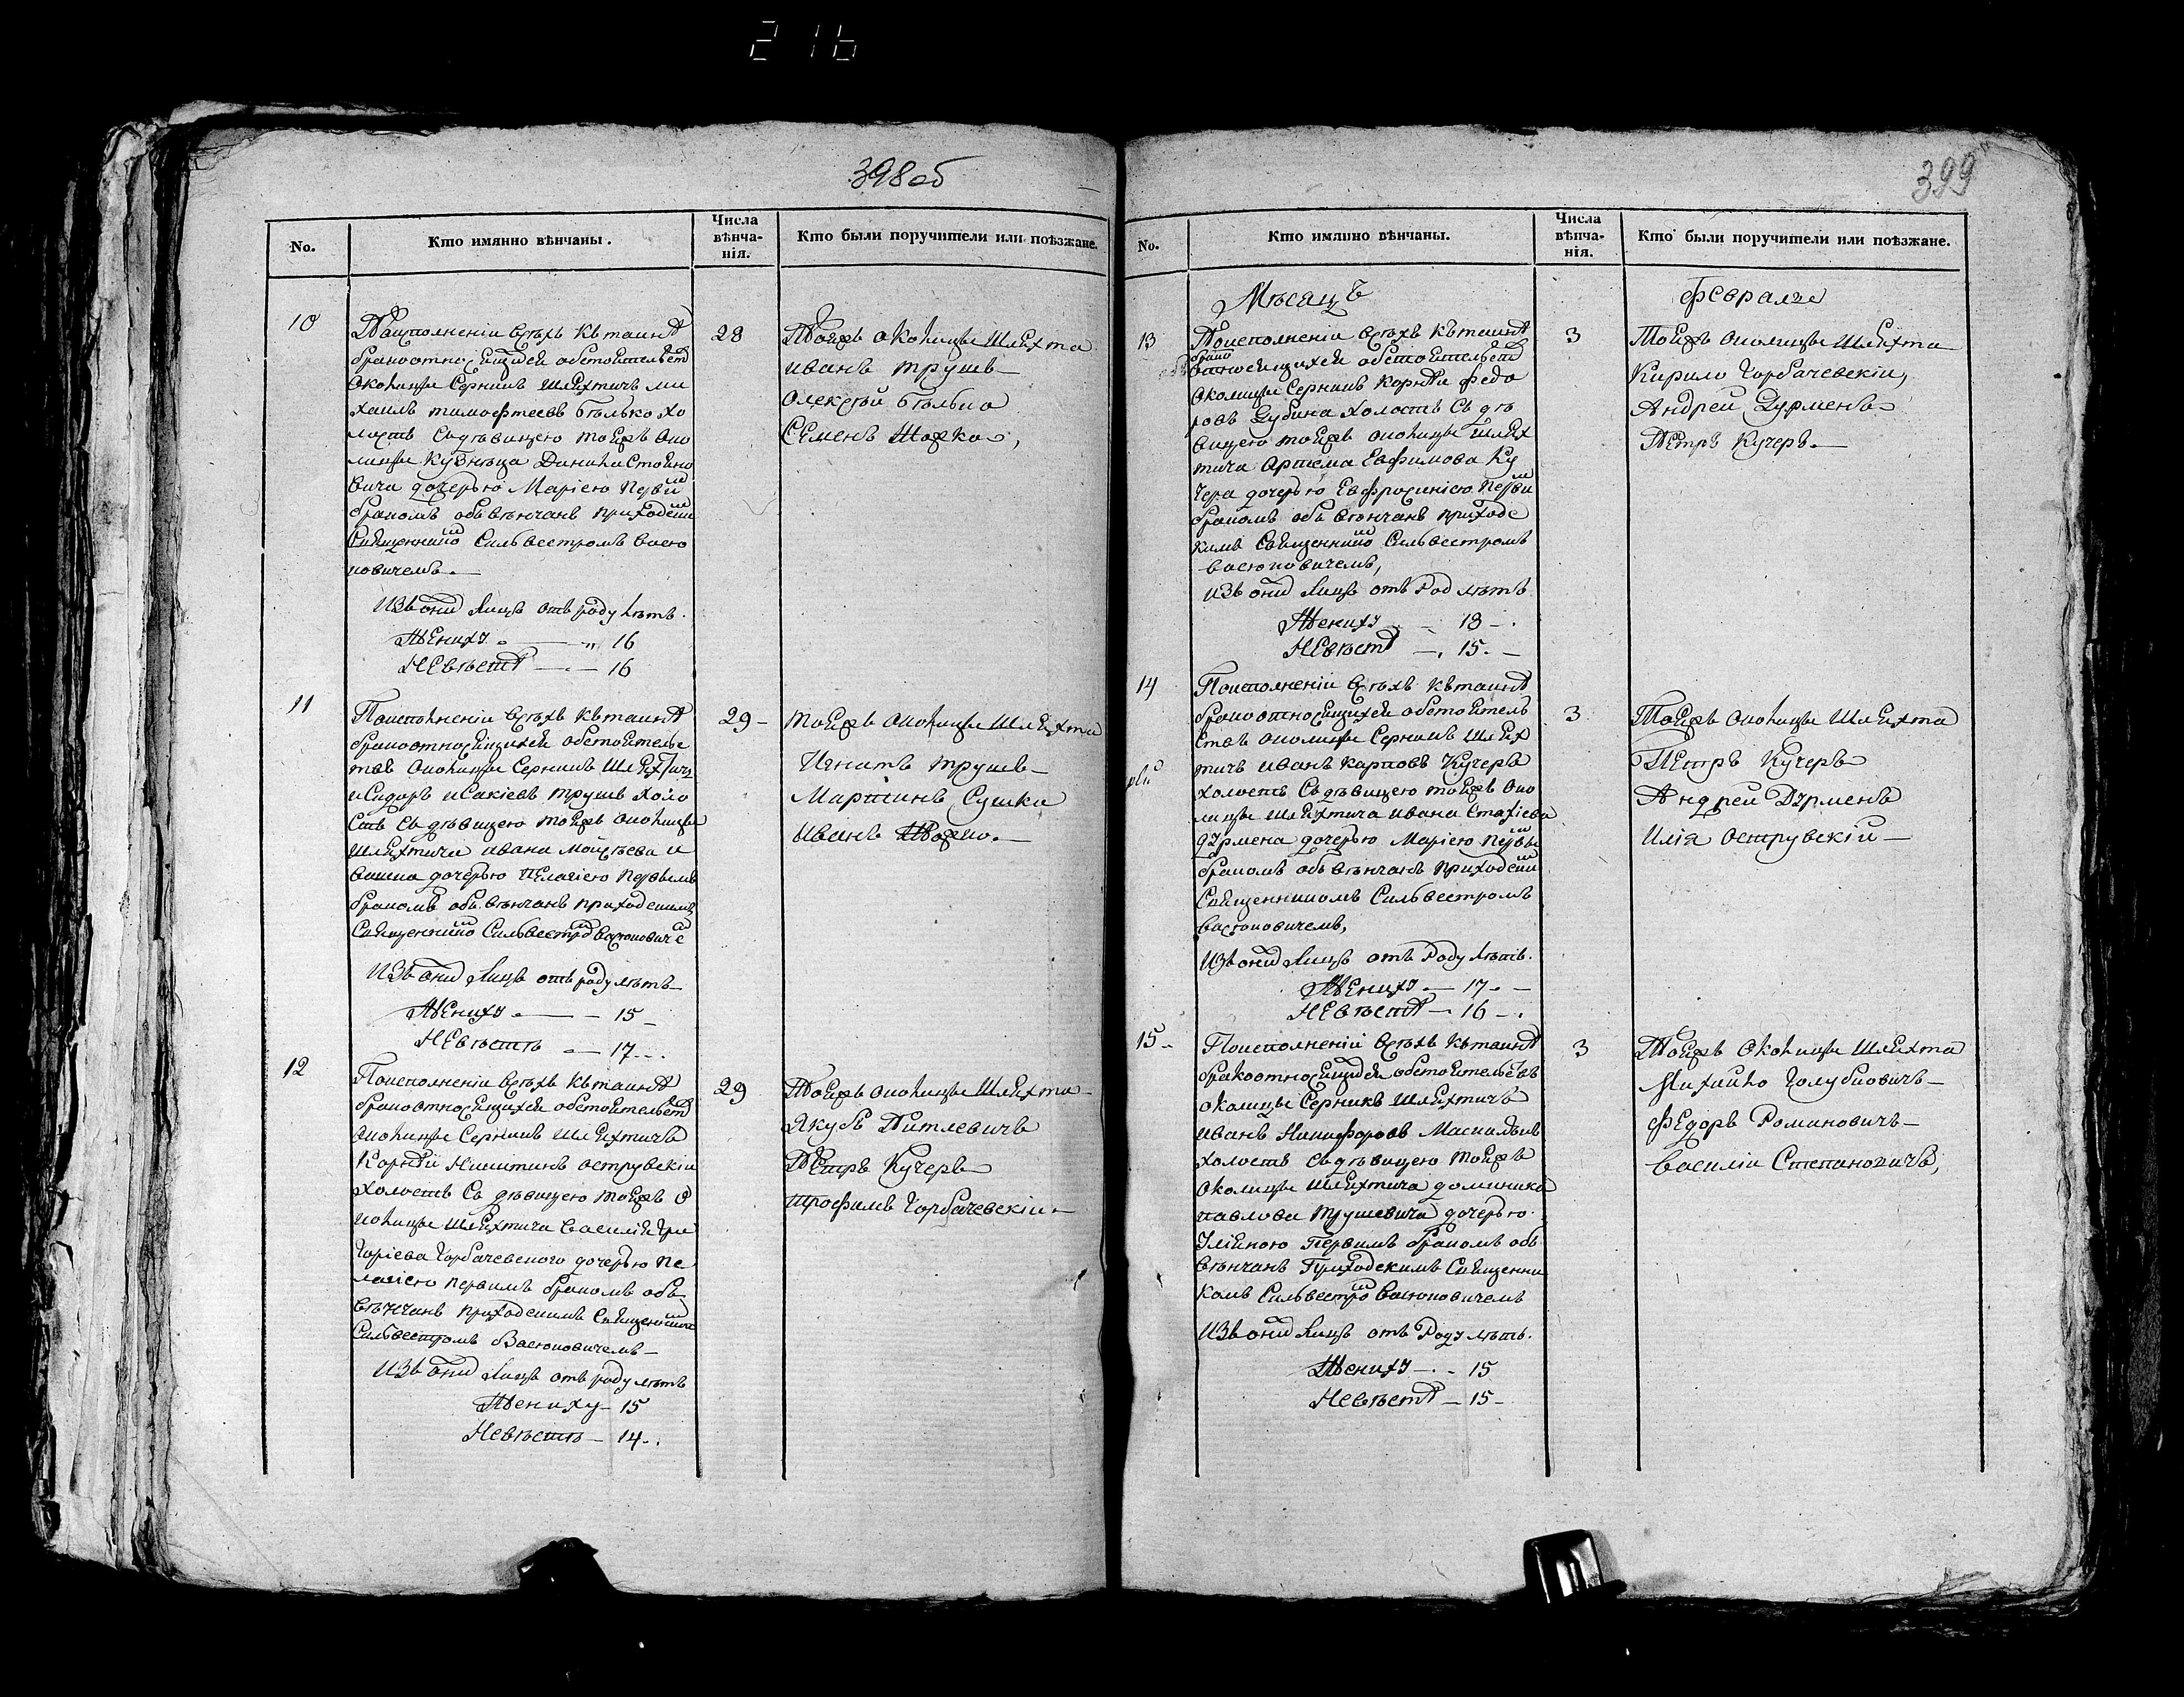 216
398об
No.
Кто имянно вѣнчаны.
Числа вѣнча-нія.
Кто были поручители или поѣзжане.
10
По исполненіи всѣхъ къ таинѣ
брако относящихся обстоятельств
околицы Серникъ шляхтичъ Ми
хаилъ Тимофѣевъ Бѣлько хо
лостъ съ дѣвицею тоижъ око
лицы кузнеца Данила Стойно
вича дочерью Маріею первы
бракомъ обвѣнчанъ приходски
священнико Сильвестромъ Васю
ковичемъ.
Изъ они лицъ отъ роду лѣтъ.
Жениху — 16
Невѣстѣ — 16
28
Тоижъ околицы шляхта
Иванъ Трушъ
Олексѣй Бѣлько
Семенъ Шожко,
11
По исполненіи всѣхъ къ таинѣ
брако относящихся обстоятельс
твъ околицы Серникъ шляхтичъ
Исидоръ Исакіевъ Трушъ холо
стъ съ дѣвицею тоижъ околицы
шляхтича Ивана Моисѣева И
дочерью Пелагіею первымъ
бракомъ обвѣнчанъ приходскимъ
священнико Сильвестро Васюковиче
Изъ они лицъ отъ роду лѣтъ
Жениху — 15
Невѣстѣ — 17
29
Тоижъ околицы шляхта
Игнатъ Трушъ
Мартинъ Сушко
Иванъ
12
По исполненіи всѣхъ къ таинѣ
брако относящихся обстоятельств
околицы Серникъ шляхтичъ
Корнѣй Никитинъ Острувскій
холостъ съ дѣвицею тоижъ о
колицы шляхтича Василія Гри
горіева Горбачевского дочерью Пе
лагіею первимъ бракомъ обв
вѣнчанъ приходскимъ священнико
Сильвестромъ Васюковичемъ
Изъ они лицъ отъ роду лѣтъ
Жениху — 15
Невѣстѣ — 14.
29
Тоижъ околицы шляхта
Якубъ Питлевичъ
Петръ Кучеръ
Трофимъ Горбачевскій
399
No.
Кто имянно вѣнчаны.
Числа вѣнча-нія.
Кто были поручители или поѣзжане.
Мѣсяцъ
Февраля
13
По исполненіи всѣхъ къ таинѣ
брако
относящихся обстоятельств
околицы Серникъ Корнѣй Федо
ровъ Дубина холостъ съ дѣ
вицею тоижъ околицы шлях
тича Артема Евфимова Ку
чера дочерью Евфросиніею первы
бракомъ обвѣнчанъ приходс
кимъ священнико Сильвестромъ
Васюковичемъ,
Изъ они лицъ отъ род лѣтъ
Жениху — 18
Невѣстѣ — 15.
3
Тоижъ околицы шляхта
Кирило Горбачевскіи,
Андрей Дурменъ
Петръ Кучеръ
14
По исполненіи всѣхъ къ таинѣ
брако относящихся обстоятель
ствъ околицы Серникъ шлях
тичъ Иванъ Карповъ Кучеръ
холостъ съ дѣвицею тоижъ око
лицы шляхтича Ивана Стахіева
Дурмена дочерью Маріею первы
бракомъ обвѣнчанъ приходски
священникомъ Сильвестромъ
Васюковичемъ,
Изъ они лицъ отъ роду лѣтъ.
Жениху — 17
Невѣстѣ — 16
3
Тоижъ околицы шляхта
Петръ Кучеръ
Андрей Дурменъ
Илія Острувскій
15
По исполненіи всѣхъ къ таинѣ
брако относящихся обстоятельсвъ
околицы Серникъ шляхтичъ
Иванъ Никифоровъ
холостъ съ дѣвицею тоижъ
околицы шляхтича Доминика
Павлова Трушевича дочерью
Уліяною первимъ бракомъ об
вѣнчанъ приходскимъ священни
комъ Сильвестро Васюковичемъ
Изъ они лицъ отъ роду лѣтъ.
Жениху — 15
Невѣстѣ — 15
3
Тоижъ околицы шляхта
Михайло Голубовичъ
Федоръ Романовичъ
Василій Степановичъ,